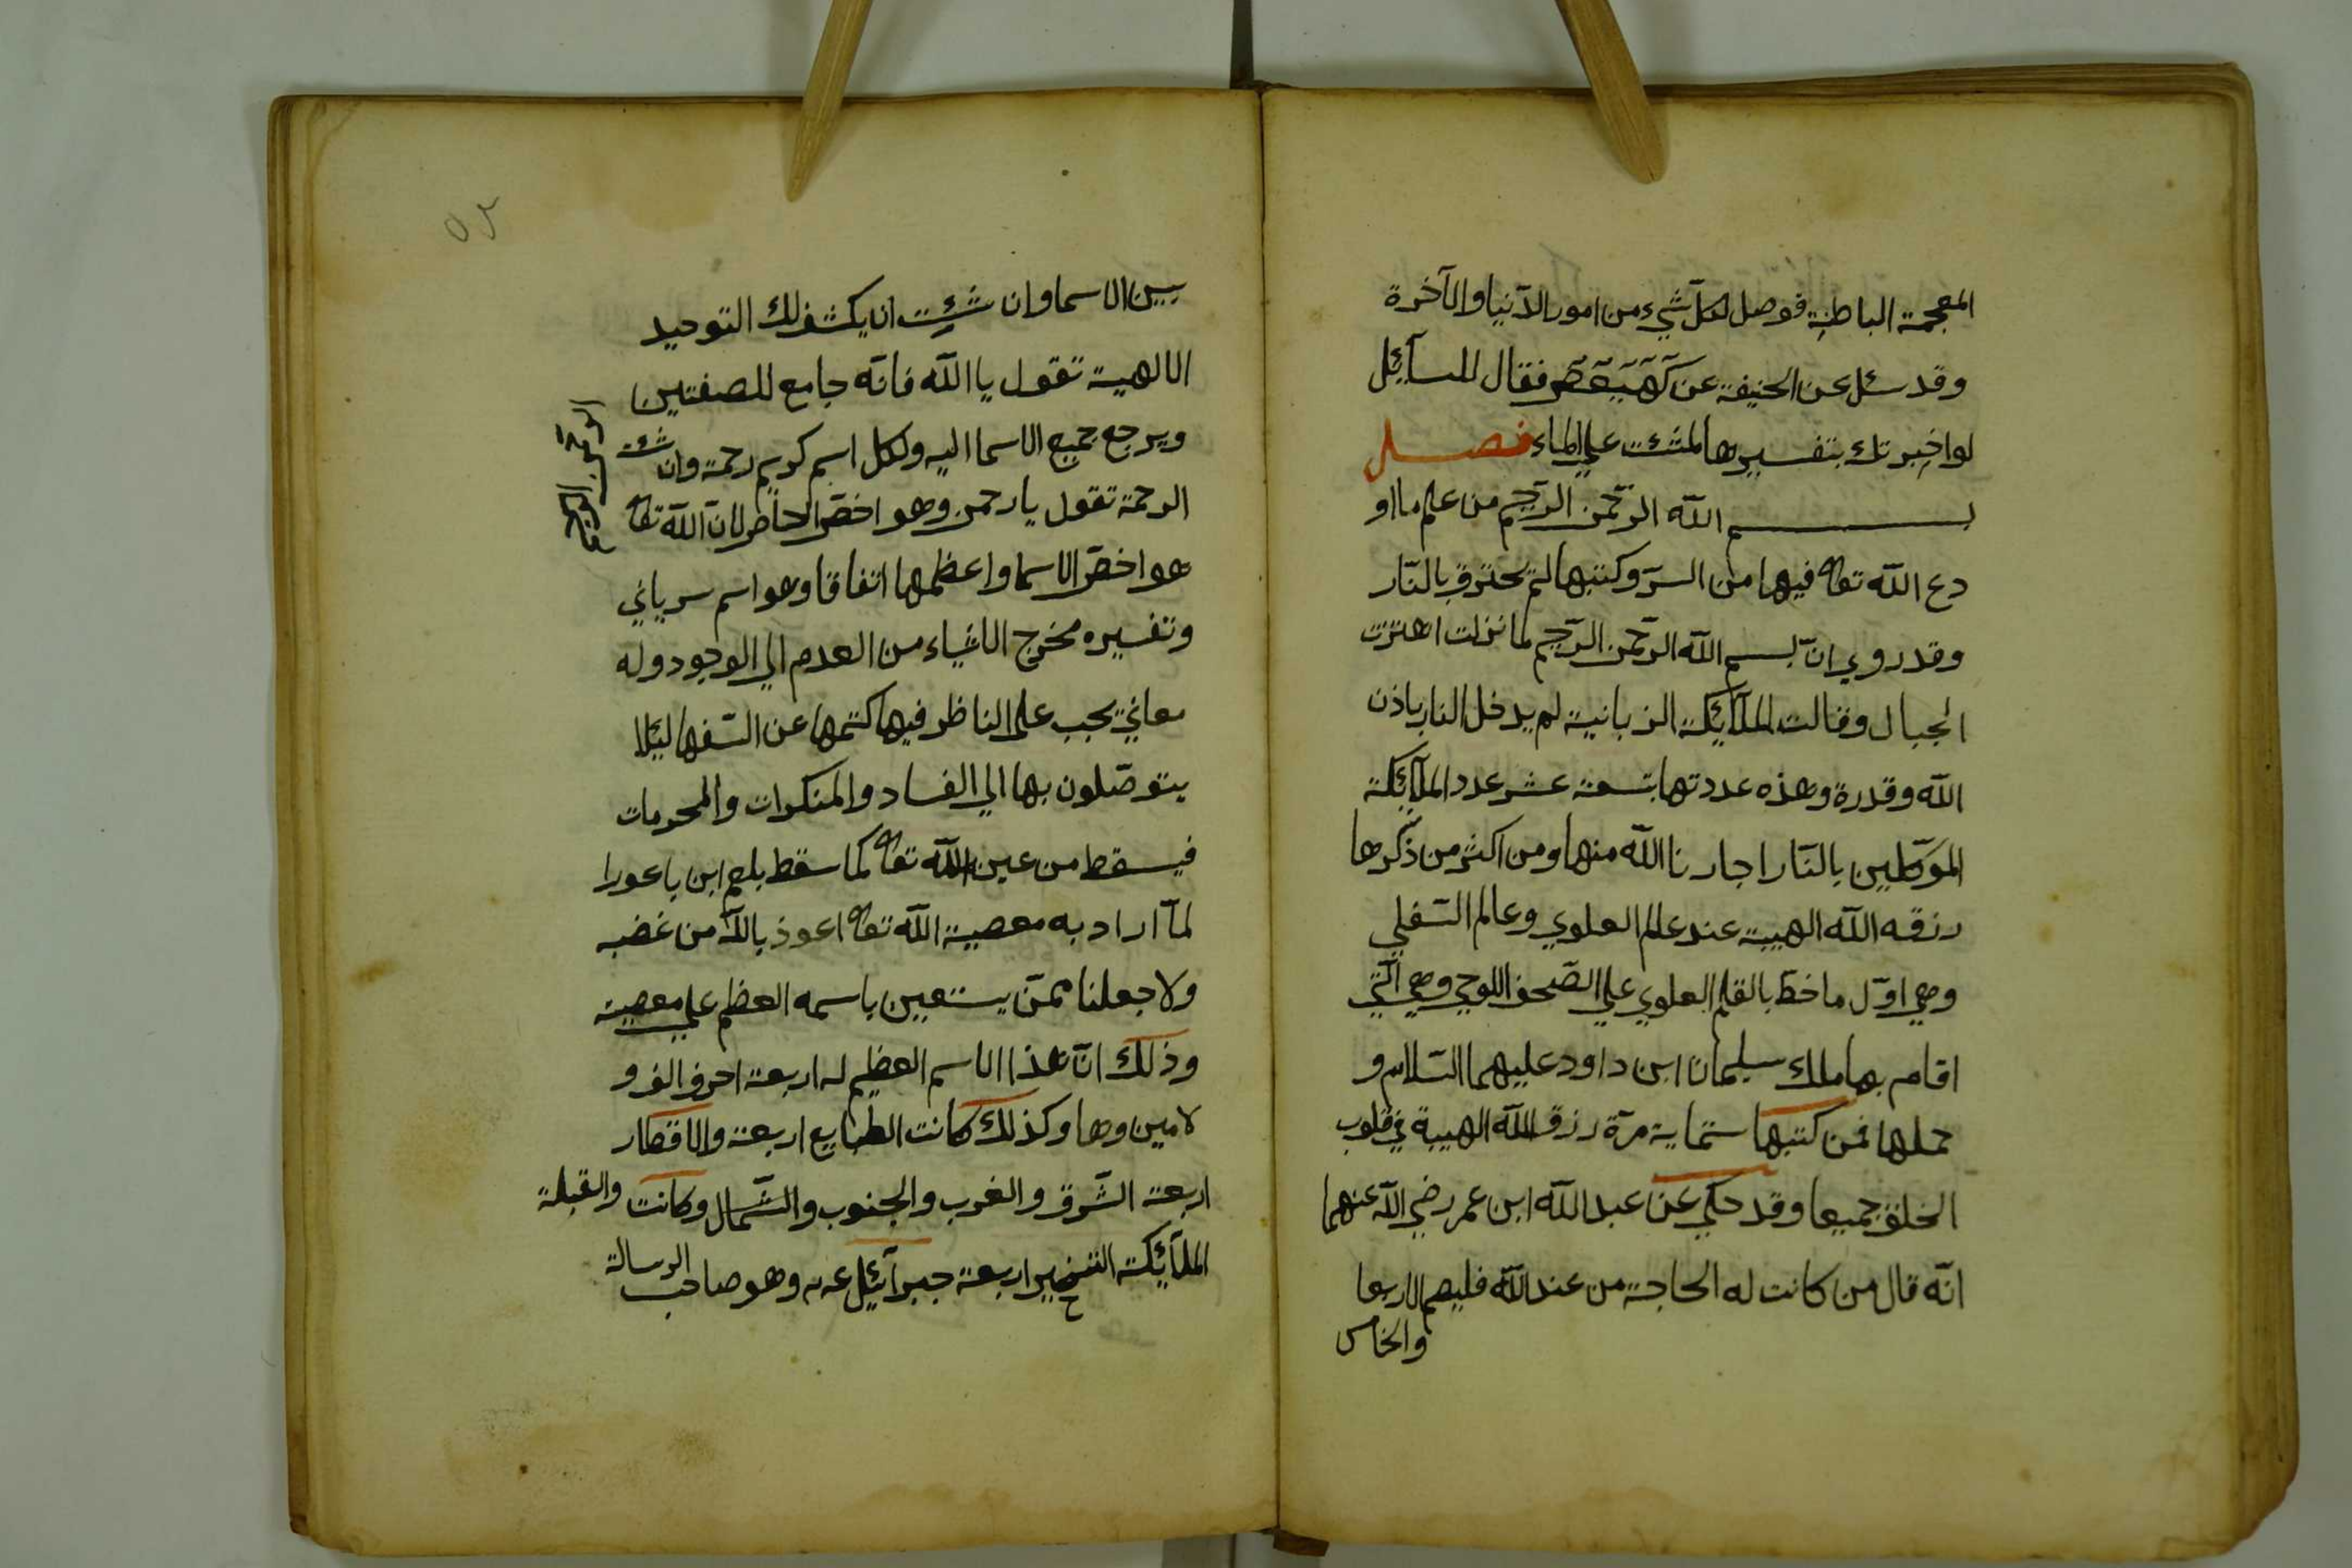 المعجمة الباطنة فوصل لكلّ شيء من امور الدّنيا والآخرة
وقد سئل عن الحنيفة عن كهيعص فقال للسآئل
لواخبرتك بتفسيرها لمشئت علي الماء فصل
بسم الله الرّحمن الرّحيم من علم ما او
دع الله تعا فيها من السرّ وكتبها لم يحترق بالنّار
وقد روي انّ بسم الله الرّحمن الرّحيم لما نزلت اهتزت
الجبال وقالت الملآئكة الزبانية لم يدخل النار باذن
الله وقدرة وهذه عددتها تسعة عشر عدد الملآئكة
الموكّلين بالنّار اجارنا الله منها ومن اكثر من ذكرها
رزقه الله الهيبة عند عالم العلوي وعالم السّفلي
وهي اوّل ما خطّ بالقلم العلوي علي الصّحف اللوحي وهي الّتي
اقام بها ملك سليمان ابن داود عليهما السّلام و
حملها فمن كتبها ستماية مرّة رزق الله الهيبة في قلوب
الخلق جميعا وقد حكي عن عبد الله ابن عمر رضي الله عنهما
انّه قال من كانت له الحاجة من عند الله فليصم الاربعا
والخامس
٥٢
بين الاسما وان شئت ان يكشف لك التوحيد
الالهية تقول يا الله فانّه جامع للصفتين
ويرجع جميع الاسما اليه ولكل اسم كريم رحمة وان شئت
الرحمة تقول يا رحمن وهو اخصّ الخاطر لانّ الله تعا
هو اخصّ الاسما واعظمها اتفاقا وهو اسم سرياني
وتفسيره مخرج الاشياء من العدم الي الوجود وله
معاني يجب علي الناظر فيها كتمها عن السّفها ليئلا
يتوصّلون بها الي الفساد والمنكرات والمحرمات
فيسقط من عين الله تعا كما سقط بلعم ابن باعورا
لمّا اراد به معصية الله تعا اعوذ بالله من غضبه
ولا جعلنا ممّن يستعين باسمه العظم علي معصيته
وذلك انّ هذا الاسم العظيم له اربعة احرف الف و
لامين وها وكذلك كانت الطبايع اربعة والاقطار
اربعة الشّرق والغرب والجنوب والشّمال وكانت والقبلة
الملآئكة اربعة جبرآئيل عم وهو صاحب الرسالة